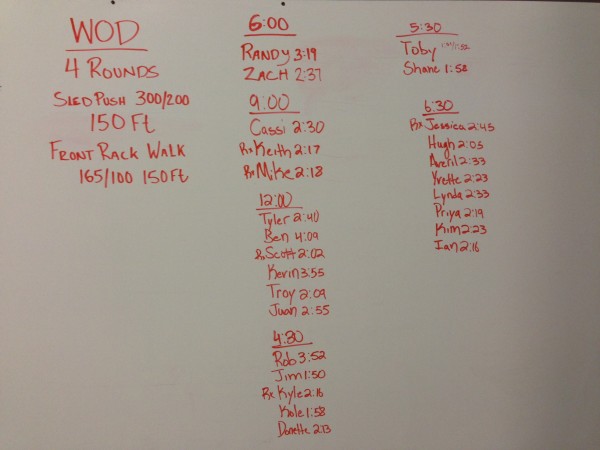 WOD
4 ROUNDS
SLED PUSH 300/200
150 Ft
FRONT RACK WALK
165/100 150Ft
6:00
RANDY 3:19
ZACH 2:37
9:00
Cassi 2:30
Rx Keith 2:17
Rx Mike 2:18
12:00
Tyler 2:40
Ben 4:09
Rx Scott 2:02
Kevin 3:55
Troy 2:09
Juan 2:55
4:30
Rob 3:52
Jim 1:50
Rx Kyle 2:16
Kole 1:58
Donette 2:13
5:30
Toby
Shane 1:58
6:30
Rx Jessica 2:45
Hugh 2:05
Averil 2:33
Yvette 2:23
Lynda 2:33
Priya 2:19
Kim 2:23
Ian 2:16